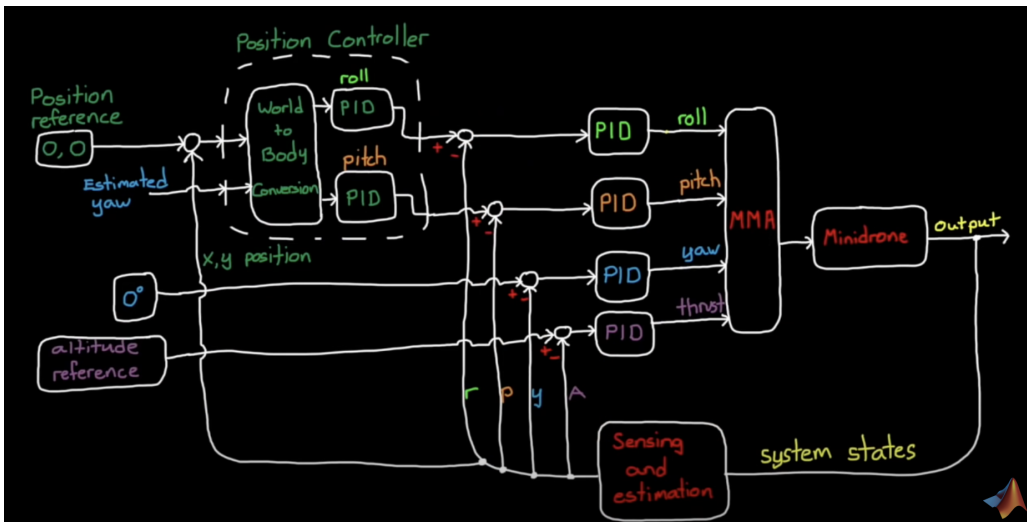 Position Controller
Position
reference
0,0
Estimated
yaw
World
to
Body
Conversion
roll
PID
pitch
PID
x,y position
0°
altitude
reference
+ -
+ -
+ -
+ -
PID
PID
PID
PID
roll
pitch
yaw
thrust
MMA
Minidrone
output
r
p
y
A
Sensing
and
estimation
system states